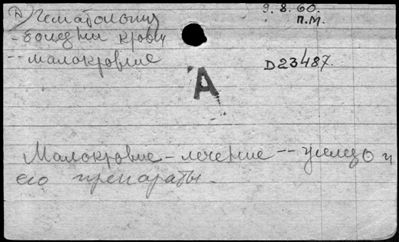 А) Гематологии 9.8.60.
- болезни крови П.М.
- малокровие D23487.
А
Малокровие - лечение -- железо и
его препараты.